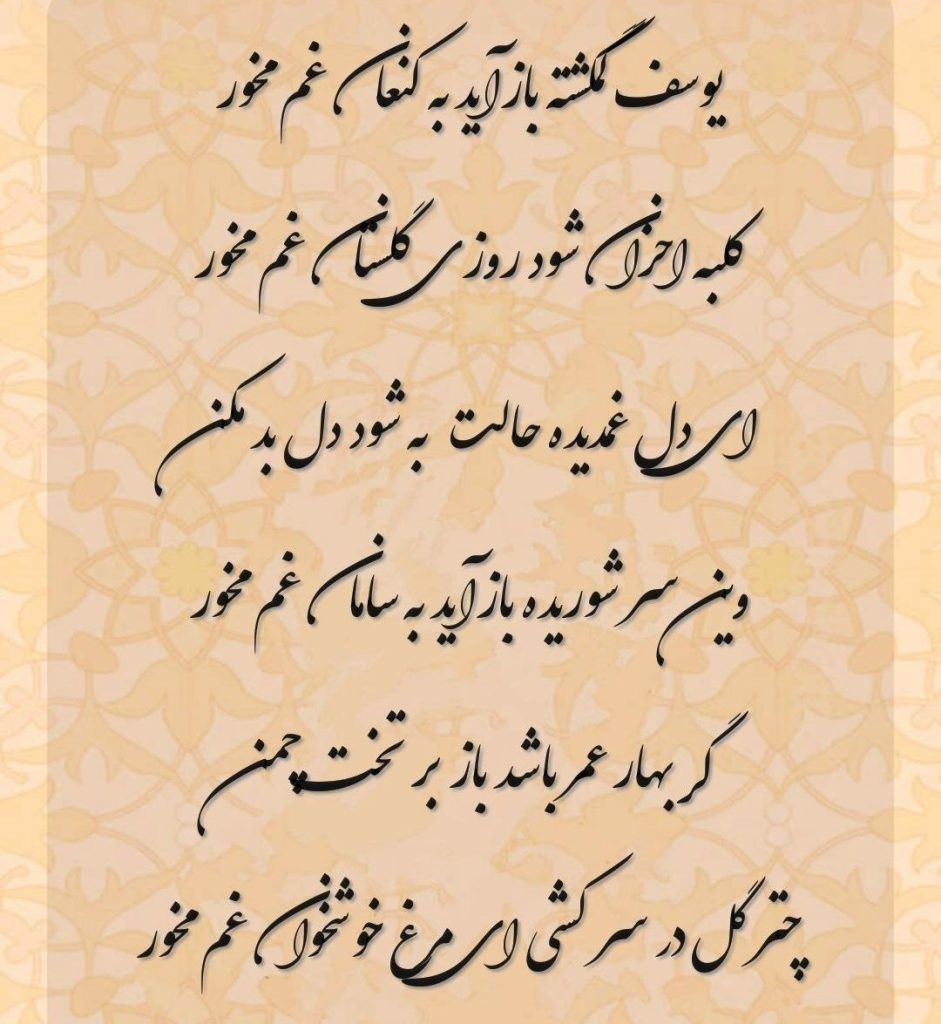 یوسف گمگشته بازآید به کنعان غم مخور
کلبه احزان شود روزی گلستان غم مخور
ای دل غمدیده حالت به شود دل بد مکن
وین سر شوریده بازآید به سامان غم مخور
گر بهار عمر باشد باز بر تخت چمن
چتر گل در سر کشی ای مرغ خوشخوان غم مخور